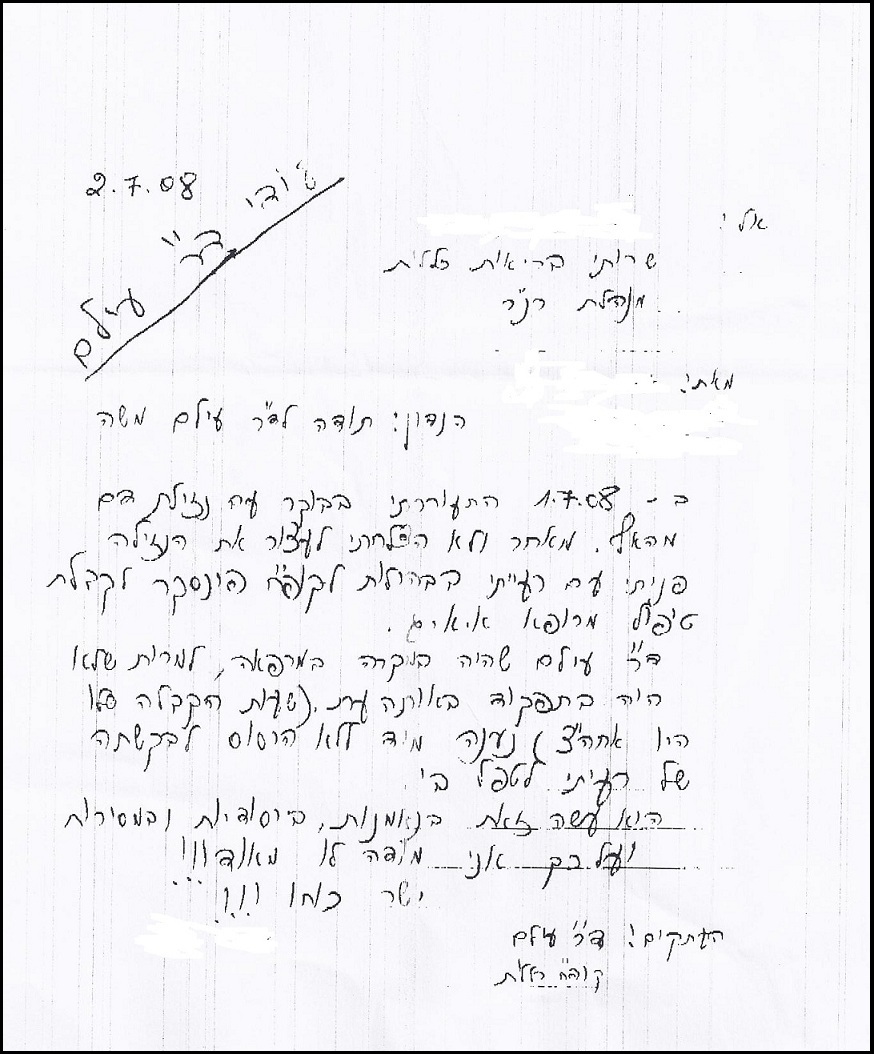 2.7.08
תודה
ד"ר
עילם
אל:
שרותי בריאות כללית
מנהלת
מאת:
הנדון: תודה לד"ר עילם משה
ב - 1.7.08 התעוררתי בבוקר עם נזילת דם
מהאף. מאחר ולא הצלחתי לעצור את הנזילה
פניתי עם רעייתי בבהילות לקופ"ח פינסקר לקבלת
טיפול מרופא א.א.ג.
ד"ר עילם שהיה במקרה במרפאה, למרות שלא
היה בתפקיד באותה עת. (שעות הקבלה שלו
היו אחה"צ) נענה מיד ללא היסוס לבקשתה
של רעיתי לטפל בי
הוא עשה זאת בנאמנות, ביסודיות ובמסירות
ועל כך אני מודה לו מאוד!!!
ישר כוחו !!!
העתקים: ד"ר עילם
קופ"ח